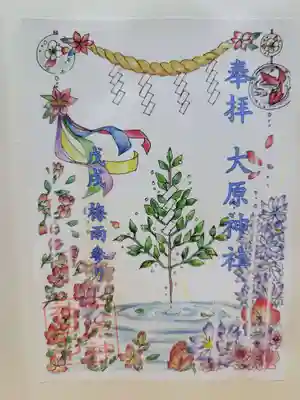 奉拝 大原神社
戊戌 梅雨参り